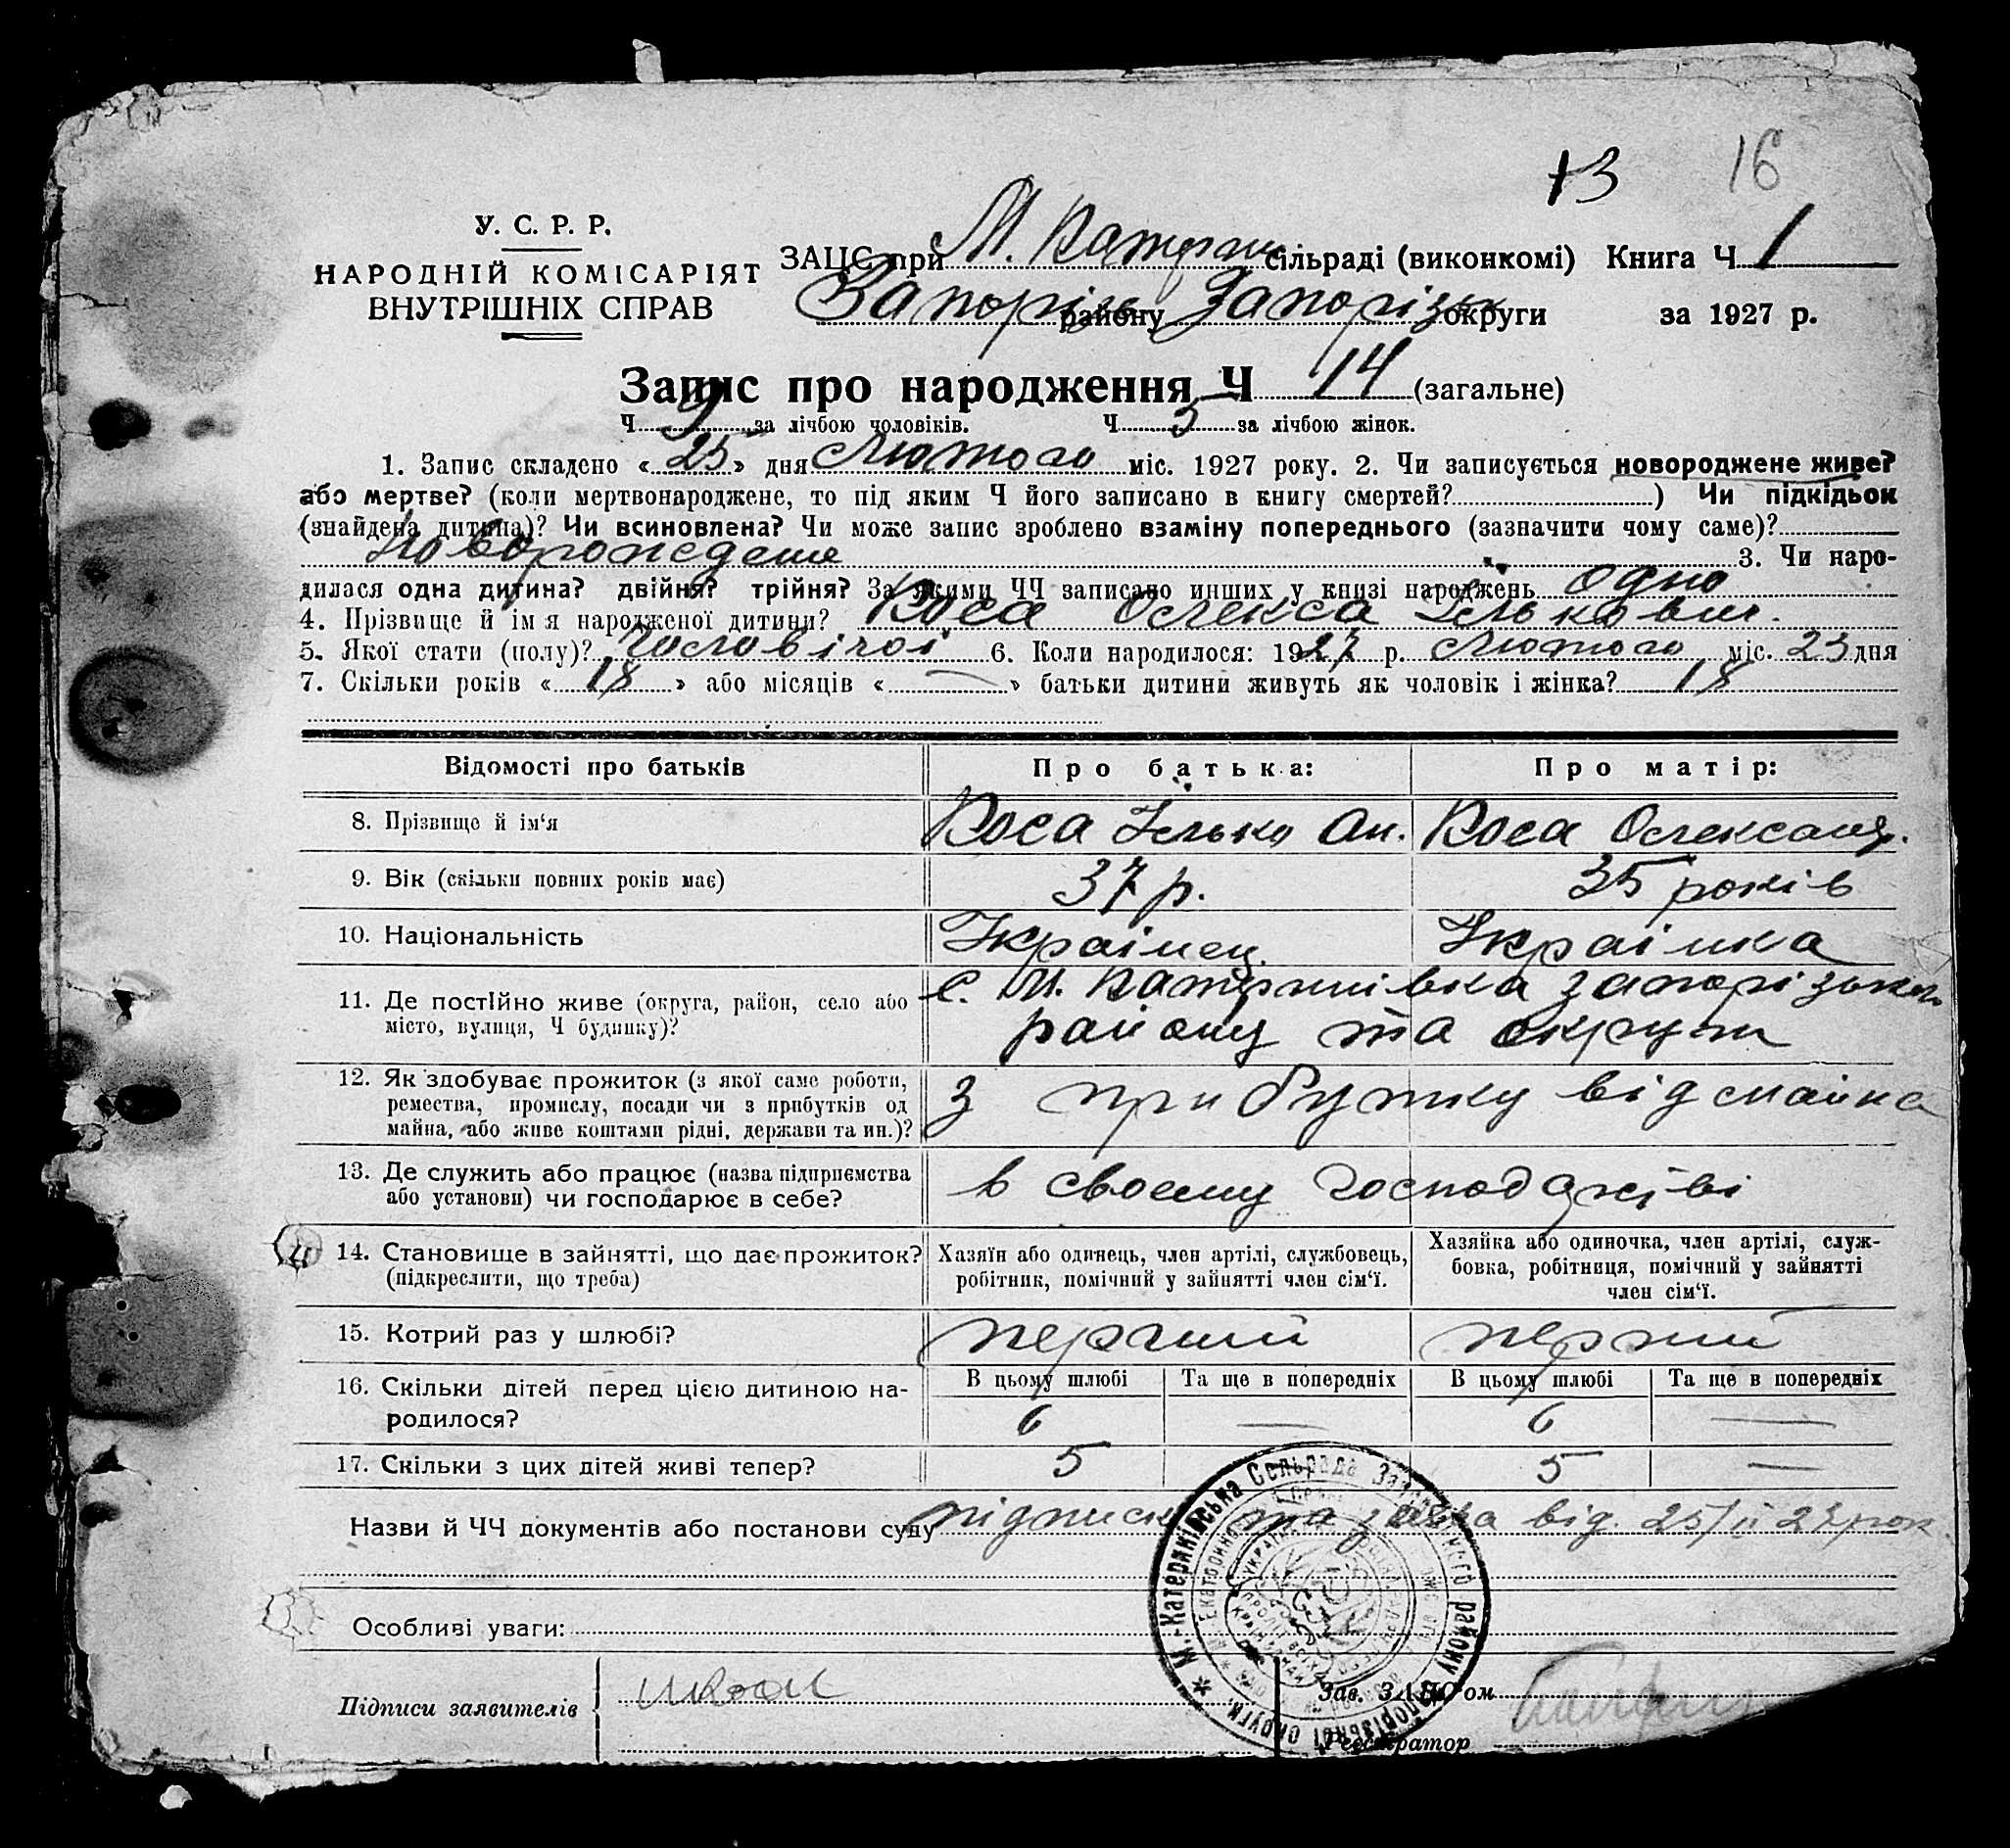 13 16
У. С. Р. Р.
НАРОДНІЙ КОМІСАРІЯТ
ВНУТРІШНІХ СПРАВ
ЗАЦС при М. Катерин сільраді (виконкомі) Книга Ч 1
Запоріж району Запорізьк округи за 1927 р.
Запис про народження Ч 14 (загальне)
Ч 9 за лічбою чоловіків. Ч 5 за лічбою жінок.
1. Запис складено « 25 » дня Лютого міс. 1927 року. 2. Чи записується новороджене живе?
або мертве? (коли мертвонароджене, то під яким Ч його записано в книгу смертей? ) Чи підкідьок
(знайдена дитина)? Чи всиновлена? Чи може запис зроблено взаміну попереднього (зазначити чому саме)?
3. Чи наро-
дилася одна дитина? двійня? трійня? За якими ЧЧ записано инших у книзі народжень одно
4. Прізвище й ім'я народженої дитини? Коса Олекса Ількович.
5. Якої стати (полу)? Чоловічої 6. Коли народилося: 1927 р. Лютого міс. 23 дня
7. Скільки років « 18 » або місяців « — » батьки дитини живуть як чоловік і жінка? 18
Відомості про батьків Про батька: Про матір:
8. Прізвище й ім'я Коса Ілько Ан. Коса Олександ.
9. Вік (скільки повних років має) 37 р. 35 років
10. Національність Українец Українка
11. Де постійно живе (округа, район, село або с. М. Катеринівка Запорізького
місто, вулиця, Ч будинку)? району та округи
12. Як здобуває прожиток (з якої саме роботи, з прибутку від майна
ремества, промислу, посади чи з прибутків од
майна, або живе коштами рідні, держави та ин.)?
13. Де служить або працює (назва підприємства в своєму господарстві
або установи) чи господарює в себе?
14. Становище в зайнятті, що дає прожиток? Хазяїн або одинець, член артілі, службовець, Хазяйка або одиночка, член артілі, служ-
(підкреслити, що треба) робітник, помічний у зайнятті член сім'ї. бовка, робітниця, помічний у зайнятті
член сім'ї.
15. Котрий раз у шлюбі? перший перший
16. Скільки дітей перед цією дитиною на- В цьому шлюбі Та ще в попередніх В цьому шлюбі Та ще в попередніх
родилося? 6 — 6 —
17. Скільки з цих дітей живі тепер? 5 5 —
Назви й ЧЧ документів або постанови суду підписка та заява від. 25/II 27 рок
Особливі уваги:
М.-Катеринівська Сельрада Запорізького району Запорізької округи.
Підписи заявителів Зав. ЗАЦС'ом
Реєстратор